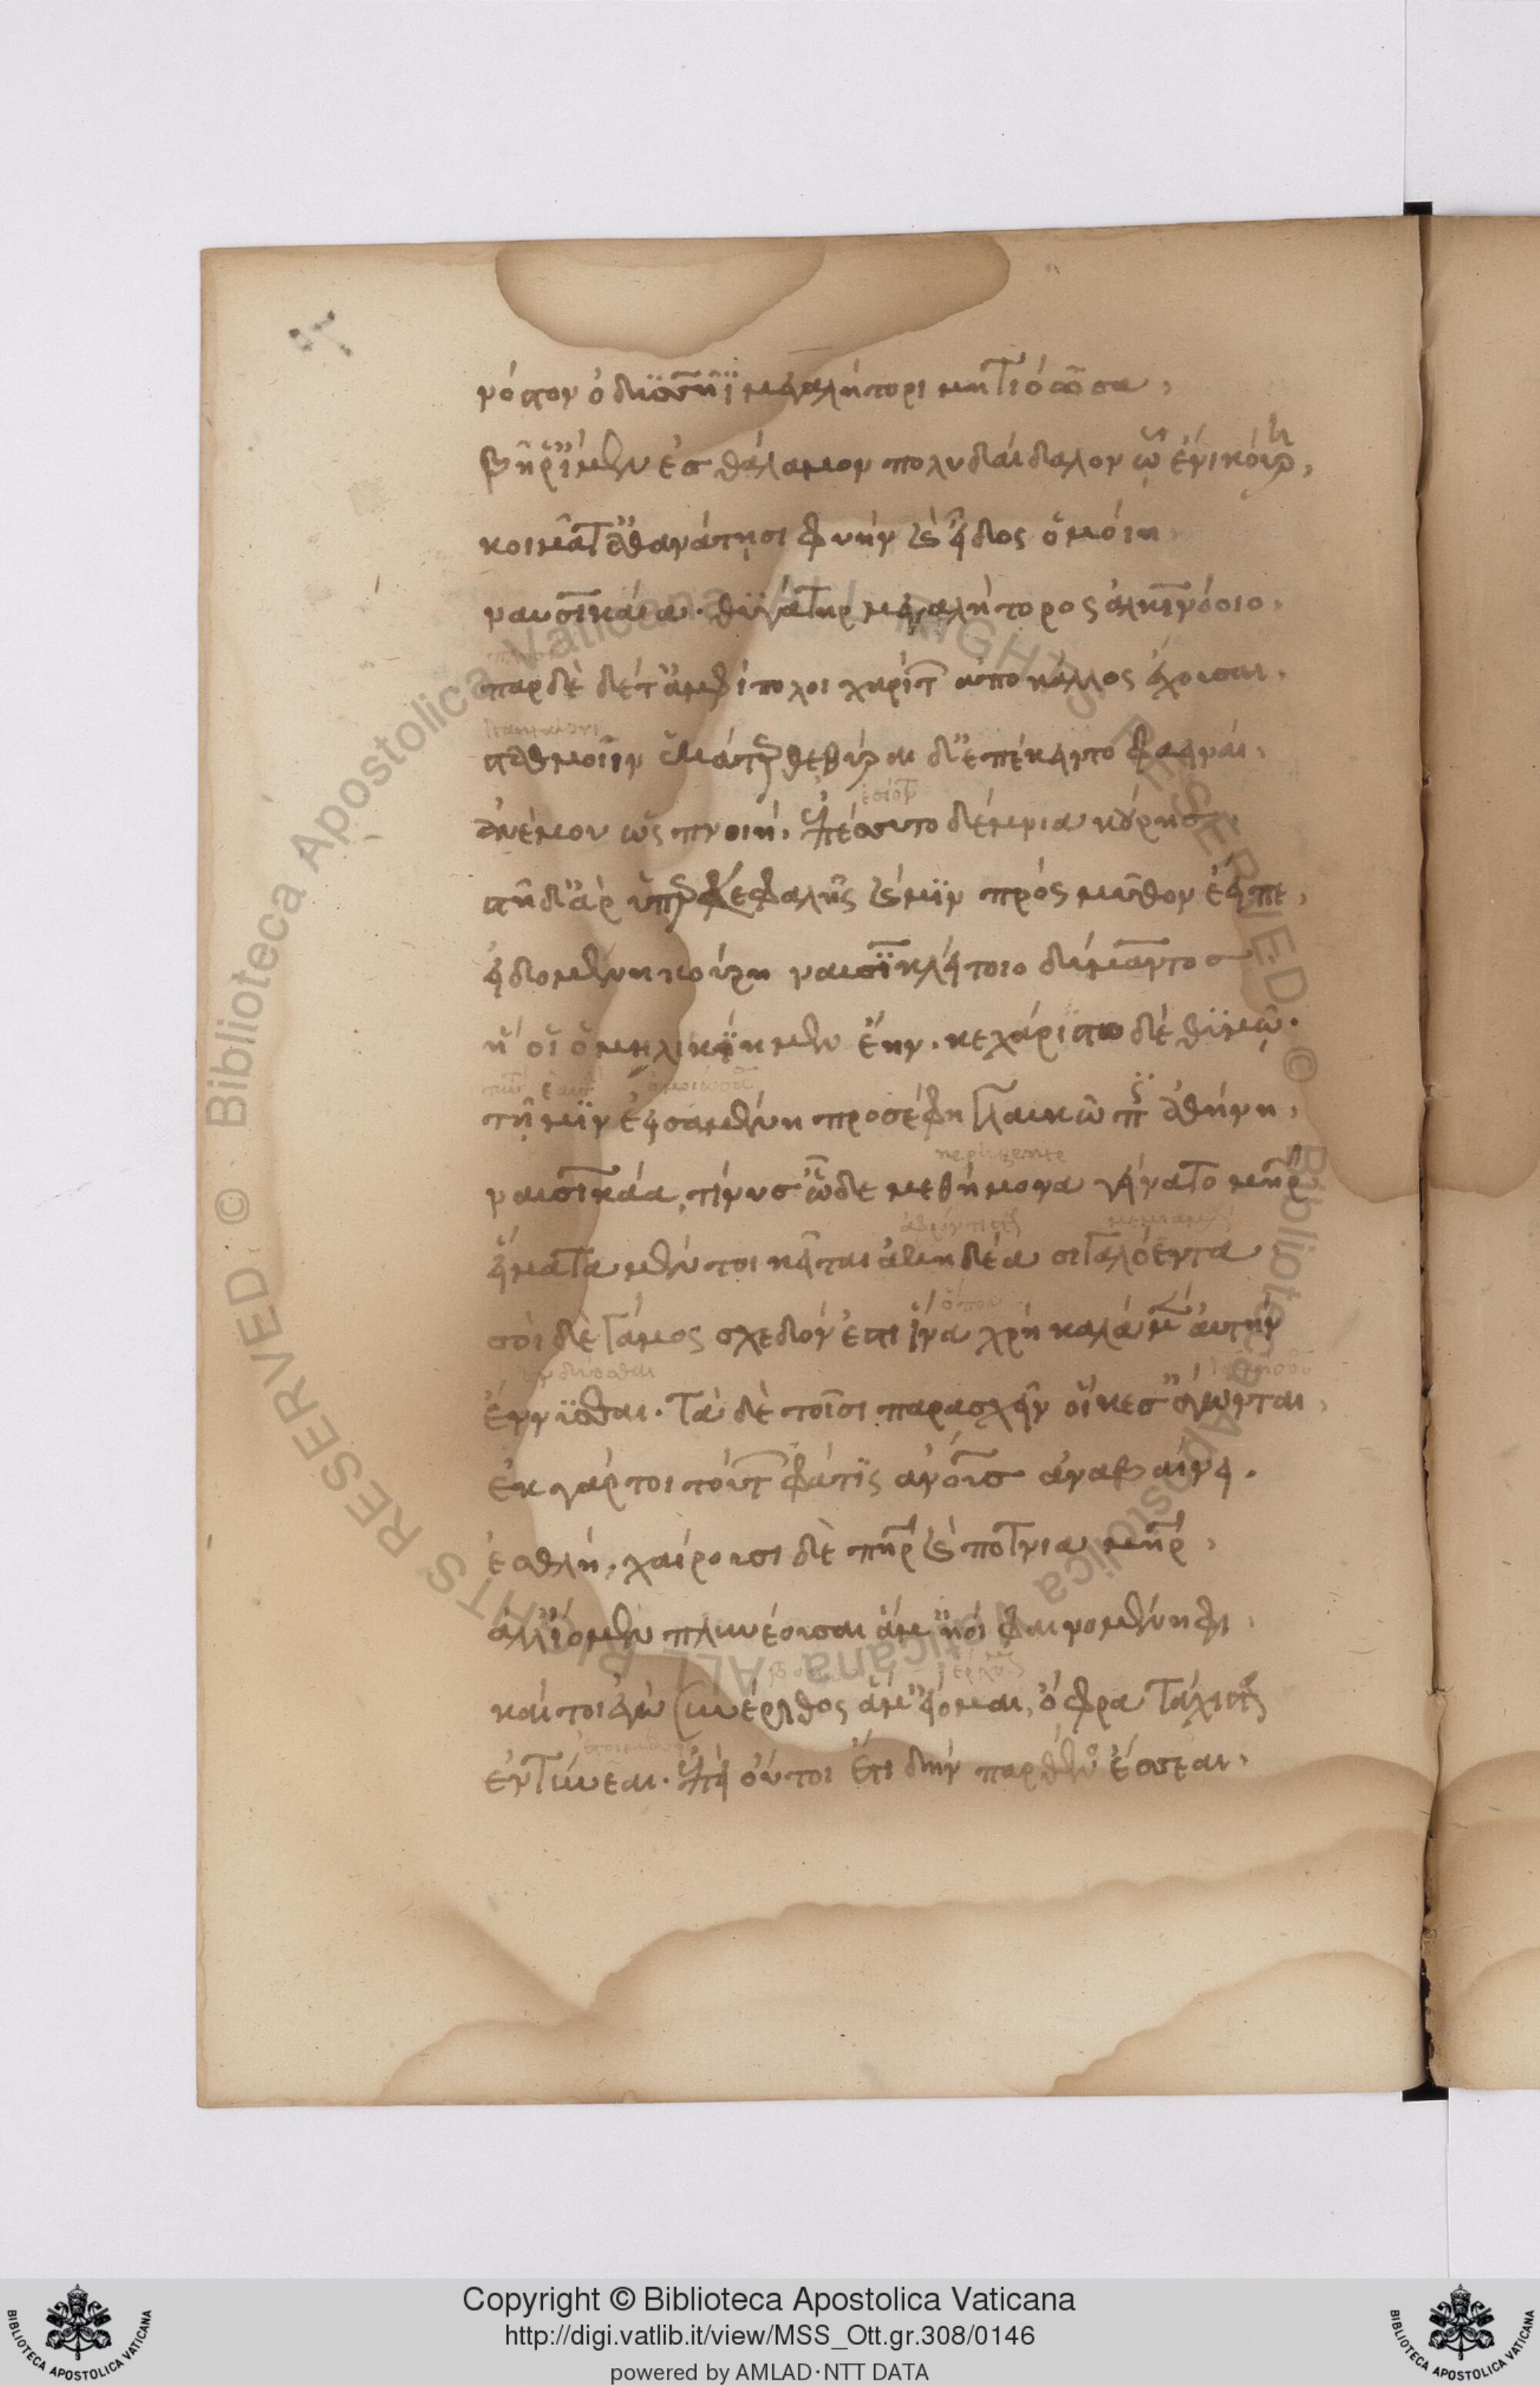 νόστον ὀδυσσῆϊ μεγαλήτορι μητιόωσα,
βῆ ῥ' ἴμεν ἐς θάλαμον πολυδαίδαλον ᾧ ἔνι κούρη,
κοιμᾶτ' ἀθανάτησι φυὴν καὶ εἶδος ὁμοίη
ναυσικάα. θυγάτηρ μεγαλήτορος ἀλκινόοιο.
παρ δὲ δύ' ἀμφίπολοι χαρίτων ἄπο κάλλος ἔχουσαι.
σταθμοῖιν ἑκάτερθε θύραι δ' ἐπέκειντο φαειναί.
ἀνέμου ὡς πνοιή. ἐπέσυτο δέμνια κούρης.
στῆ δ' ἄρ' ὑπὲρ κεφαλῆς καί μιν πρὸς μῦθον ἔειπε,
εἰδομένη κούρη ναυσικλειτοῖο δύμαντος
ἥ οἱ ὁμηλικίη μὲν ἔην. κεχάριστο δὲ θυμῷ.
τῇ μιν ἐεισαμένη προσέφη γλαυκῶπις ἀθήνη,
negligente
ναυσικάα, τί νύ σ' ὧδε μεθήμονα γείνατο μήτηρ
εἵματα μέν τοι κεῖται ἀκηδέα σιγαλόεντα
ὅπου
σοὶ δὲ γάμος σχεδόν ἐστι ἵνα χρὴ καλὰ μὲν αὐτὴν
ἐνδύσασθαι
ἕννυσθαι. τὰ δὲ τοῖσι παρασχεῖν οἵ κέ σ' ἄγωνται.
ἐκ γάρ τοι τούτων φάτις ἀνθρώπους ἀναβαίνει.
ἐσθλή, χαίρουσι δὲ πατὴρ καὶ πότνια μήτηρ.
ἀλλ' ἴομεν πλυνέουσαι ἅμ' ἠοῖ φαινομένηφι.
καί τοι ἐγὼ συνέριθος ἅμ' ἕψομαι, ὄφρα τάχιστα
ἐντύνεαι. ἐπεὶ οὔτοι ἔτι δὴν παρθένος ἔσσεαι.
Copyright © Biblioteca Apostolica Vaticana
http://digi.vatlib.it/view/MSS_Ott.gr.308/0146
powered by AMLAD·NTT DATA
BIBLIOTECA APOSTOLICA VATICANA
BIBLIOTECA APOSTOLICA VATICANA